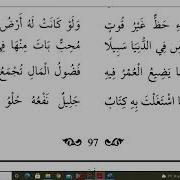 حَظٌّ غَيْرُ قُوتٍ وَلَوْ كَانَتْ لَهُ أَرْضُ
فِي الدُّنْيَا سَبِيلًا مُحِبٌّ بَاتَ مِنْهَا فِي
يَضِيعُ الْعُمْرُ فِيهِ فُضُولُ الْمَالِ تُجْمَعُ
اشْتَغَلْتَ بِهِ كِتَابٌ جَلِيلٌ نَفْعُهُ حُلْوُ
97